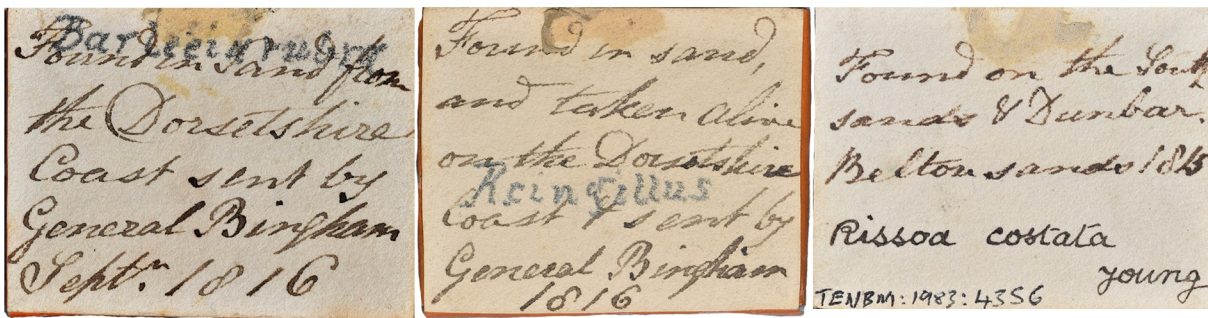 Barleeia rubra
Found in sand from
the Dorsetshire
Coast sent by
General Bingham
Septr. 1816
Found in sand,
and taken alive
on the Dorsetshire
Coast & sent by
General Bingham
1816
Found on the South
sands & Dunbar.
Belton sands 1815
Rissoa costata
young
TENBM:1983:4356